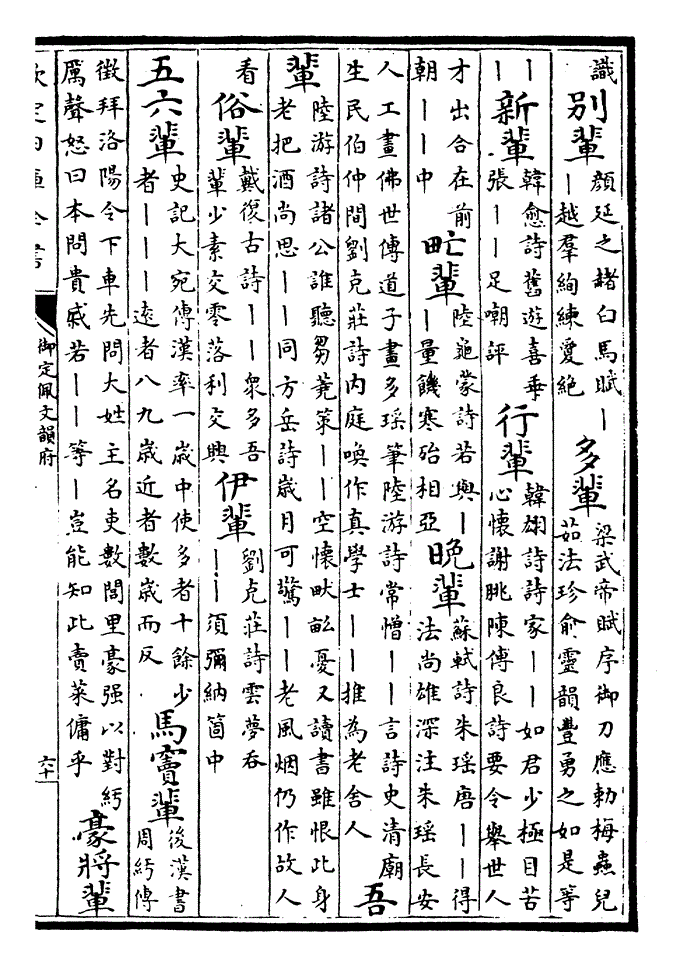 識別輩顔延之赭白馬賦｜｜越羣絢練夐絶多輩梁武帝賦序御刀應勅梅蟲兒茹法珍俞靈韻豐勇之如是等
｜｜新輩韓愈詩舊遊喜乖張｜｜足嘲評行輩韓翃詩詩家｜｜如君少極目苦心懷謝朓陳傅良詩要令舉世人
才出合在前朝｜｜中甿輩陸龜蒙詩若與｜｜量饑寒殆相亞晩輩蘇軾詩朱瑶唐｜｜得法尚雄深注朱瑶長安
人工畫佛世傳道子畫多瑶筆陸游詩常憎｜｜言詩史清廟生民伯仲間劉克莊詩内庭喚作真學士｜｜推為老舍人吾
輩陸游詩諸公誰聽芻蕘策｜｜空懷畎畝憂又讀書雖恨此身老把酒尚思｜｜同方岳詩歳月可驚｜｜老風烟仍作故人
看俗輩戴復古詩｜｜衆多吾輩少素交零落利交興伊輩劉克莊詩雲夢吞｜｜須彌納箇中
五六輩史記大宛傳漢率一歳中使多者十餘少者｜｜｜逺者八九歳近者數歳而反馬竇輩後漢書周紆傳
徴拜洛陽令下車先問大姓主名吏數閭里豪强以對紆厲聲怒曰本問貴戚若｜｜等｜豈能知此賣菜傭乎豪將輩
欽定四庫全書
御定佩文韻府
六十